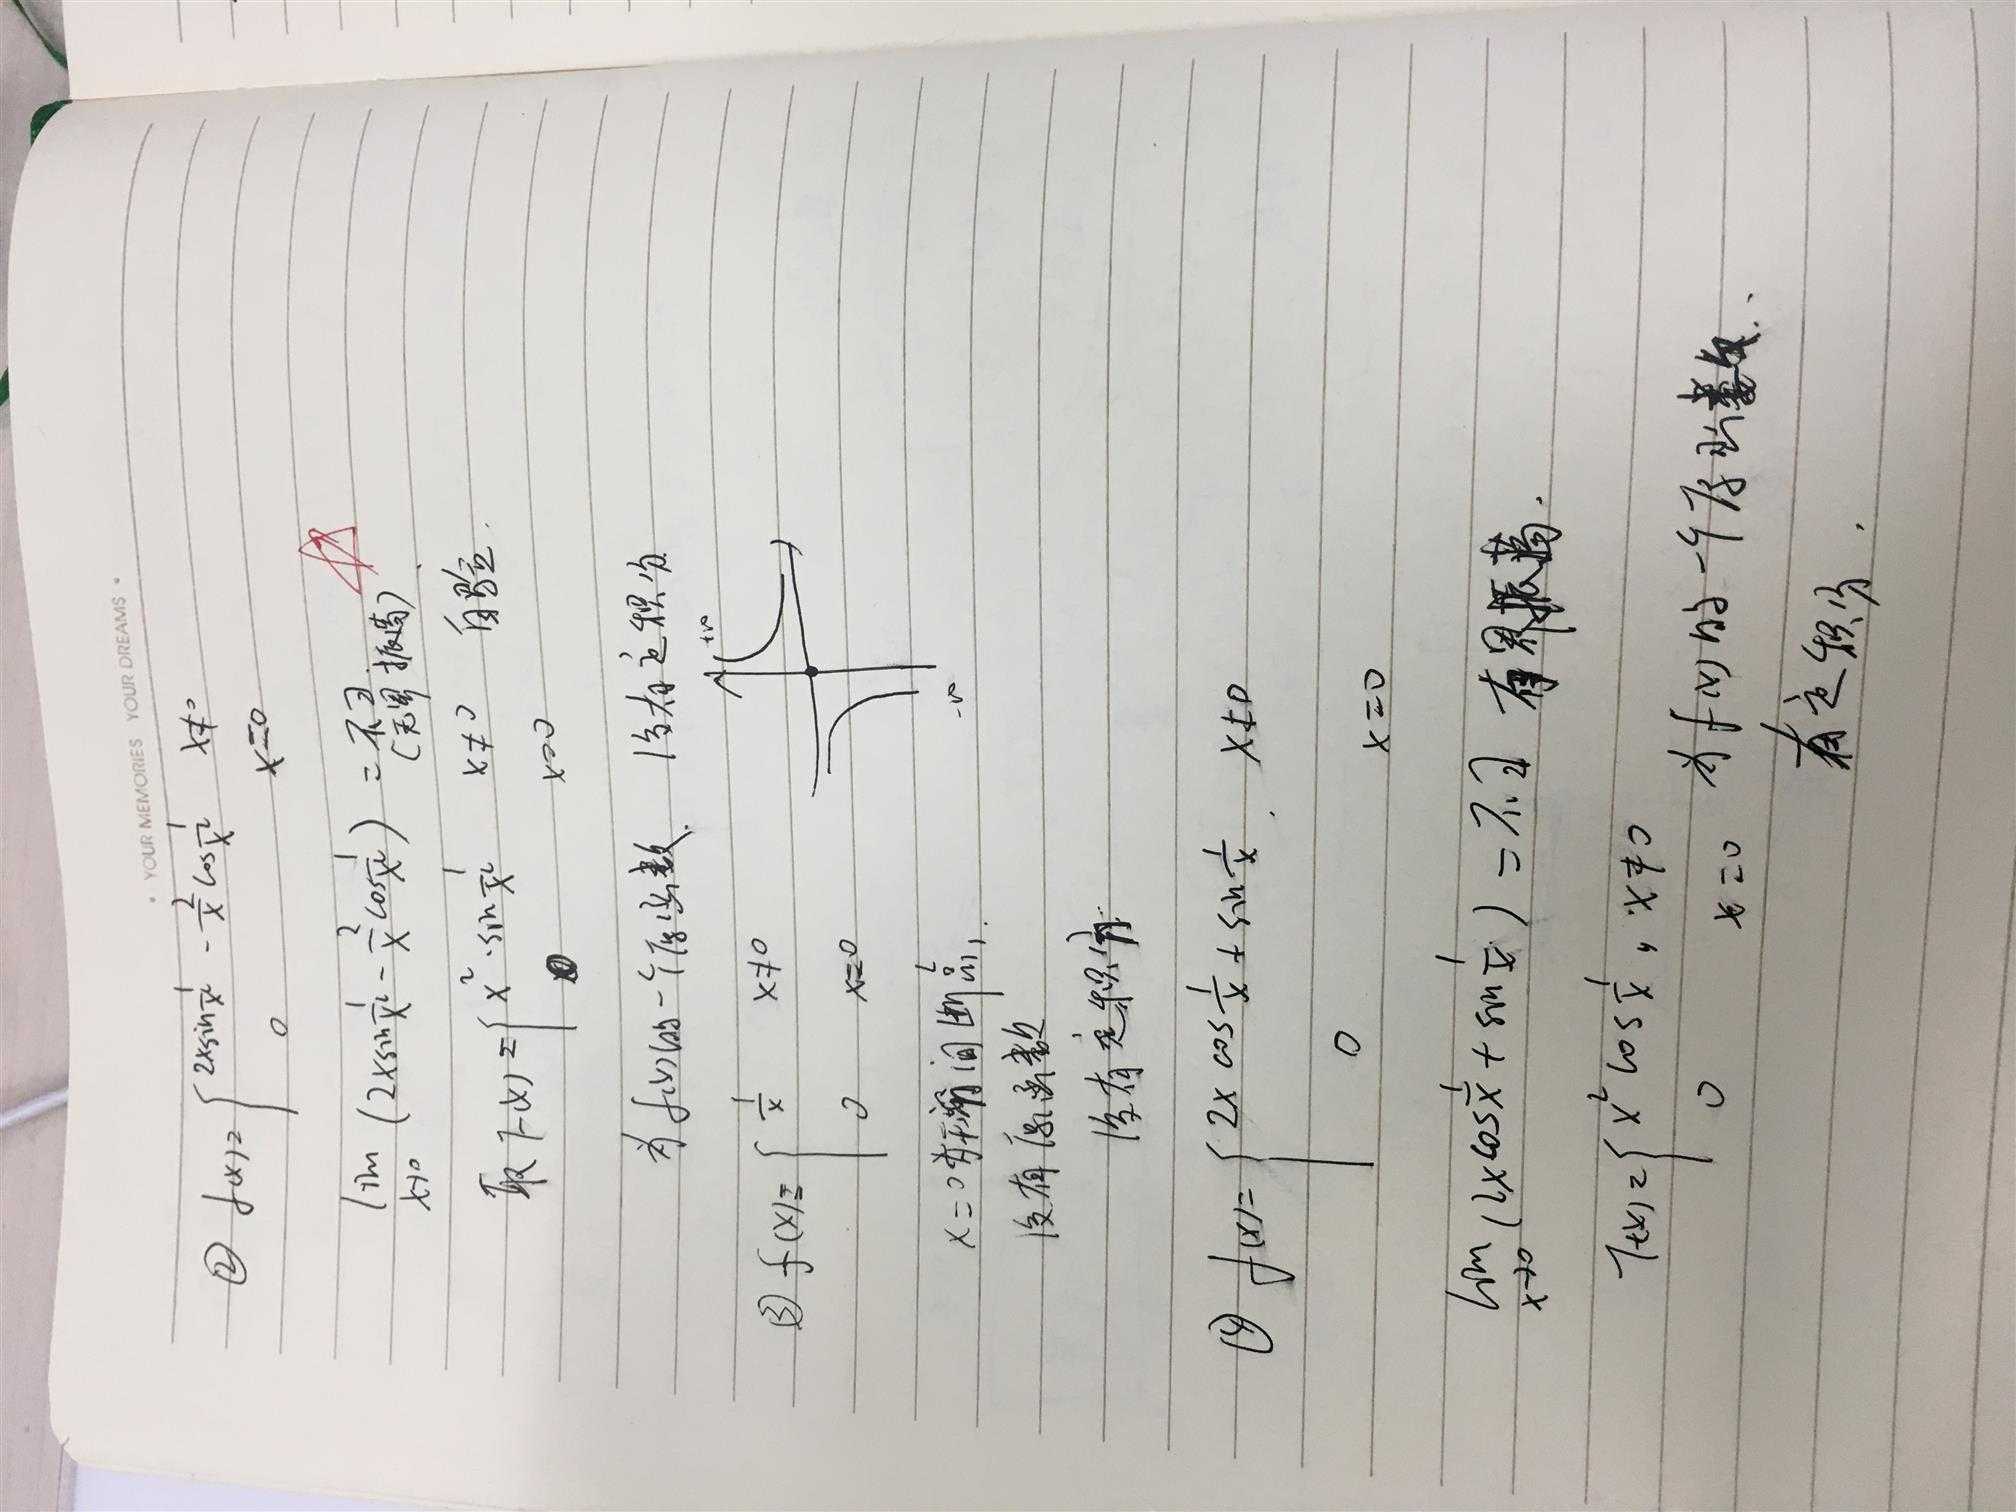 • YOUR MEMORIES YOUR DREAMS •
② f(x)= { 2xsin 1/x² - 2/x cos 1/x² x≠0
0 x=0
lim x→0 (2xsin 1/x² - 2/x cos 1/x²) = 不∃
(无界振荡)
取 F(x) = { x²·sin 1/x² x≠0 自验.
0 x=0
为 f(x) 的一个原函数. 没有定积分
③ f(x)= { 1/x x≠0
0 x=0
+∞
-∞
x=0 为无穷间断点,
没有原函数
没有定积分.
④ f(x)= { 2x cos 1/x + sin 1/x. x≠0
0 x=0
lim x→0 (2xcos 1/x + sin 1/x) = 不∃ 有界振荡.
F(x)= { x² cos 1/x, x≠0
0 x=0 为 f(x) 的一个原函数.
有定积分.